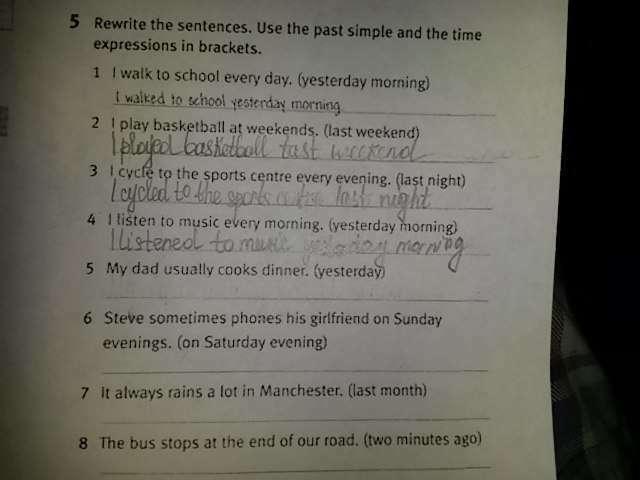 5 Rewrite the sentences. Use the past simple and the time
expressions in brackets.
1 I walk to school every day. (yesterday morning)
I walked to school yesterday morning
2 I play basketball at weekends. (last weekend)
I played basketball last weekend
3 I cycle to the sports centre every evening. (last night)
I cycled to the sports centre last night
4 I listen to music every morning. (yesterday morning)
I listened to music yesterday morning
5 My dad usually cooks dinner. (yesterday)
6 Steve sometimes phones his girlfriend on Sunday
evenings. (on Saturday evening)
7 It always rains a lot in Manchester. (last month)
8 The bus stops at the end of our road. (two minutes ago)